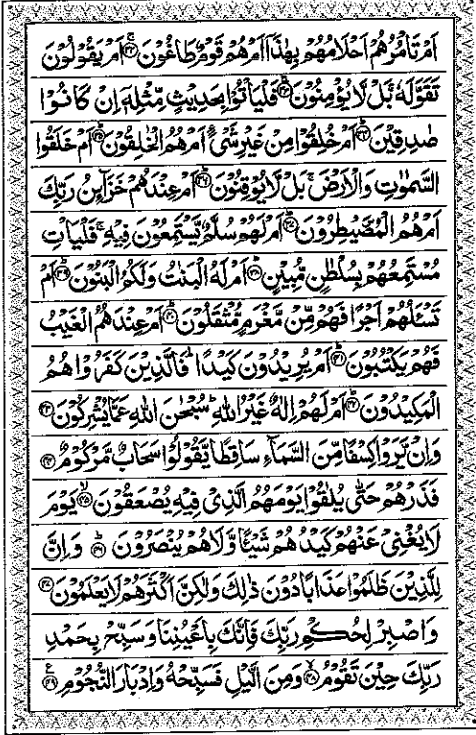 اَمۡ تَاۡمُرُهُمۡ اَحۡلَامُهُمۡ بِهٰذَاۤ اَمۡ هُمۡ قَوۡمٌ طَاغُوۡنَ ۚ‏﴿۳۲﴾ اَمۡ يَقُوۡلُوۡنَ
تَقَوَّلَهٗ ۚ بَلْ لَّا يُؤۡمِنُوۡنَ ۚ‏﴿۳۳﴾ فَلۡيَاۡتُوۡا بِحَدِيۡثٍ مِّثۡلِهٖۤ اِنۡ كَانُوۡا
صٰدِقِيۡنَؕ‏﴿۳۴﴾ اَمۡ خُلِقُوۡا مِنۡ غَيۡرِ شَىۡءٍ اَمۡ هُمُ الۡخٰلِقُوۡنَؕ‏﴿۳۵﴾ اَمۡ خَلَقُوا
السَّمٰوٰتِ وَالۡاَرۡضَ‌ۚ بَلْ لَّا يُوۡقِنُوۡنَؕ‏﴿۳۶﴾ اَمۡ عِنۡدَهُمۡ خَزَآٮِٕنُ رَبِّكَ
اَمۡ هُمُ الۡمُصَۜيۡطِرُوۡنَؕ‏﴿۳۷﴾ اَمۡ لَهُمۡ سُلَّمٌ يَّسۡتَمِعُوۡنَ فِيۡهِ‌ ۚ فَلۡيَاۡتِ
مُسۡتَمِعُهُمۡ بِسُلۡطٰنٍ مُّبِيۡنٍؕ‏﴿۳۸﴾ اَمۡ لَهُ الۡبَنٰتُ وَلَـكُمُ الۡبَنُوۡنَؕ‏﴿۳۹﴾ اَمۡ
تَسۡـَٔـلُهُمۡ اَجۡرًا فَهُمۡ مِّنۡ مَّغۡرَمٍ مُّثۡقَلُوۡنَؕ‏﴿۴۰﴾ اَمۡ عِنۡدَهُمُ الۡغَيۡبُ
فَهُمۡ يَكۡتُبُوۡنَؕ‏﴿۴۱﴾ اَمۡ يُرِيۡدُوۡنَ كَيۡدًا‌ؕ فَالَّذِيۡنَ كَفَرُوۡا هُمُ
الۡمَكِيۡدُوۡنَؕ‏﴿۴۲﴾ اَمۡ لَهُمۡ اِلٰهٌ غَيۡرُ اللّٰهِ‌ؕ سُبۡحٰنَ اللّٰهِ عَمَّا يُشۡرِكُوۡنَ‏﴿۴۳﴾
وَاِنۡ يَّرَوۡا كِسۡفًا مِّنَ السَّمَآءِ سَاقِطًا يَّقُوۡلُوۡا سَحَابٌ مَّرۡكُوۡمٌ‏﴿۴۴﴾
فَذَرۡهُمۡ حَتّٰى يُلٰقُوۡا يَوۡمَهُمُ الَّذِىۡ فِيۡهِ يُصۡعَقُوۡنَۙ‏﴿۴۵﴾ يَوۡمَ
لَا يُغۡنِىۡ عَنۡهُمۡ كَيۡدُهُمۡ شَيۡـًٔـا وَّلَا هُمۡ يُنۡصَرُوۡنَؕ‏﴿۴۶﴾ وَاِنَّ
لِلَّذِيۡنَ ظَلَمُوۡا عَذَابًا دُوۡنَ ذٰلِكَ وَلٰـكِنَّ اَكۡثَرَهُمۡ لَا يَعۡلَمُوۡنَ‏﴿۴۷﴾
وَاصۡبِرۡ لِحُكۡمِ رَبِّكَ فَاِنَّكَ بِاَعۡيُنِنَا‌ وَسَبِّحۡ بِحَمۡدِ
رَبِّكَ حِيۡنَ تَقُوۡمُۙ‏﴿۴۸﴾ وَمِنَ الَّيۡلِ فَسَبِّحۡهُ وَاِدۡبَارَ النُّجُوۡمِ‏﴿۴۹﴾